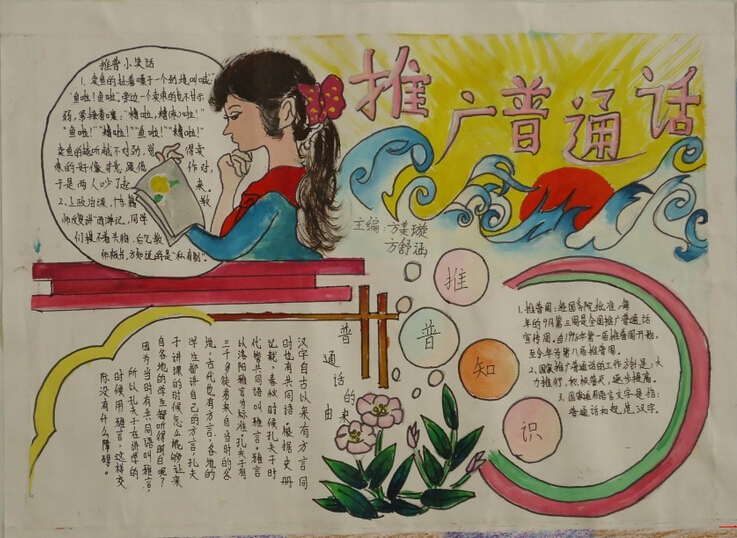 推广普通话
主编:方美璇
方舒涵
推普小笑话
1. 卖鱼的扯着嗓子一个劲地叫喊:
“鱼啦!鱼啦!”旁边一个卖枣的也不甘示
弱,紧接着嚷:
“鱼啦!”“糟啦!”“鱼啦!”“糟啦!”
卖鱼的越听越不对劲,觉得卖
枣的好像故意跟他作对,
于是两人吵了起来。
2. 上政治课,
师没要讲“西游记,同学
们摸不着头脑,
师板书,方知说的是“私有制”。
推普知识
1. 推普周:经国务院批准,每
年的9月第三周是全国推广普通话
宣传周。自1998年第一届推普周开始,
至今年为第八届推普周。
2. 国家推广普通话的工作方针是:大
力推行,积极普及,逐步提高。
3. 国家通用语言文字是指:
普通话和规范汉字。
普通话的由来
汉字自古以来有方言同
时也有共同语。根据史册
记载,春秋时候孔夫子时
代管共同语叫雅言。雅言
以洛阳雅言为标准。孔夫子有
三千多徒弟来自当时的各
地,古代也有方言,各地的
学生都讲自己的方言,孔夫
子讲课的时候怎么能够让来
自各地的学生都听得明白呢?
因为当时有共同语叫雅言,
所以孔夫子在讲学的
时候用雅言,这样交
际没有什么障碍。